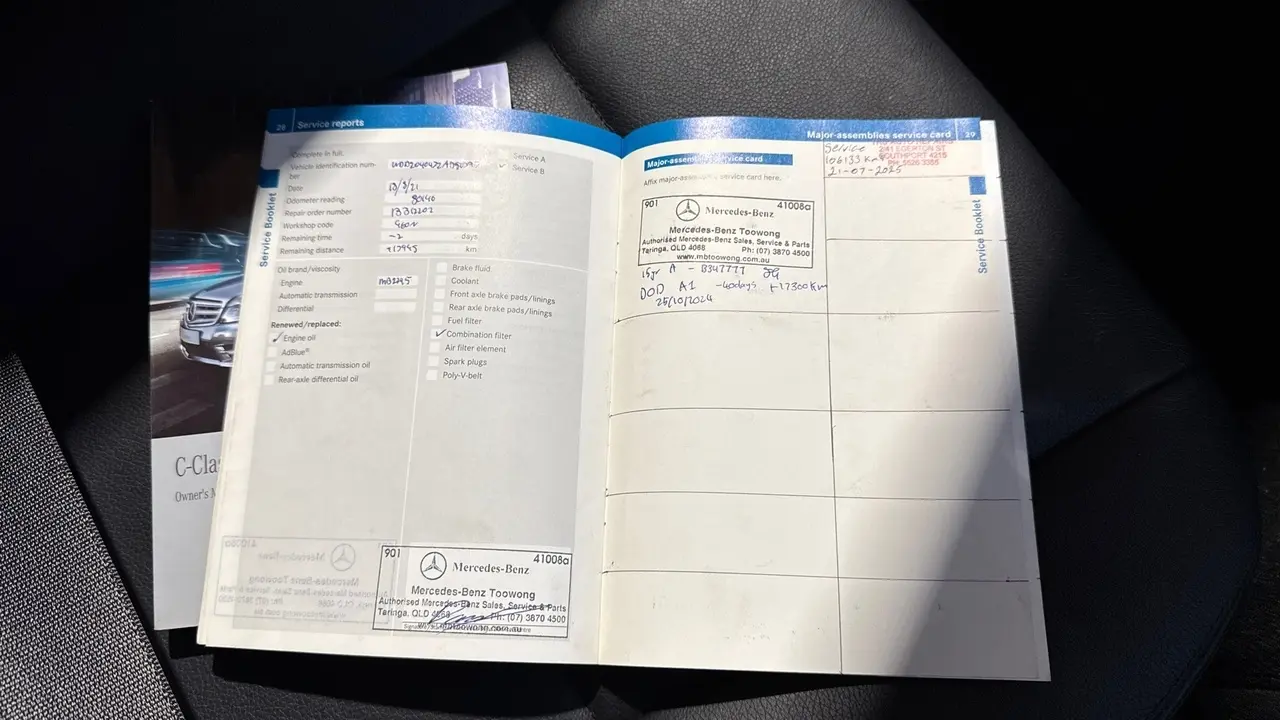 28 Service reports
Complete in full.
Vehicle identification num-
ber
Date 13/9/21
Odometer reading 80140
Repair order number
Workshop code
Remaining time -2 days
Remaining distance +17995 km
Service A
✓ Service B
Oil brand/viscosity
Engine
Automatic transmission
Differential
Renewed/replaced:
✓ Engine oil
AdBlue®
Automatic transmission oil
Rear-axle differential oil
Brake fluid
Coolant
Front axle brake pads/linings
Rear axle brake pads/linings
Fuel filter
✓ Combination filter
Air filter element
Spark plugs
Poly-V-belt
Service Booklet
901 41008a
Mercedes-Benz
Mercedes-Benz Toowong
Authorised Mercedes-Benz Sales, Service & Parts
Taringa, QLD 4068 Ph: (07) 3870 4500
www.mbtoowong.com.au
C-Cla
Owner's M
Major-assemblies service card 29
Major-assemblies service card
Affix major-assemblies service card here.
901 41008a
Mercedes-Benz
Mercedes-Benz Toowong
Authorised Mercedes-Benz Sales, Service & Parts
Taringa, QLD 4068 Ph: (07) 3870 4500
www.mbtoowong.com.au
A - B347777
DOD A1 -40days +17300km
25/10/2024
Service
106133 Km
21-07-2025
2/41 EGERTON ST
SOUTHPORT 4215
Service Booklet